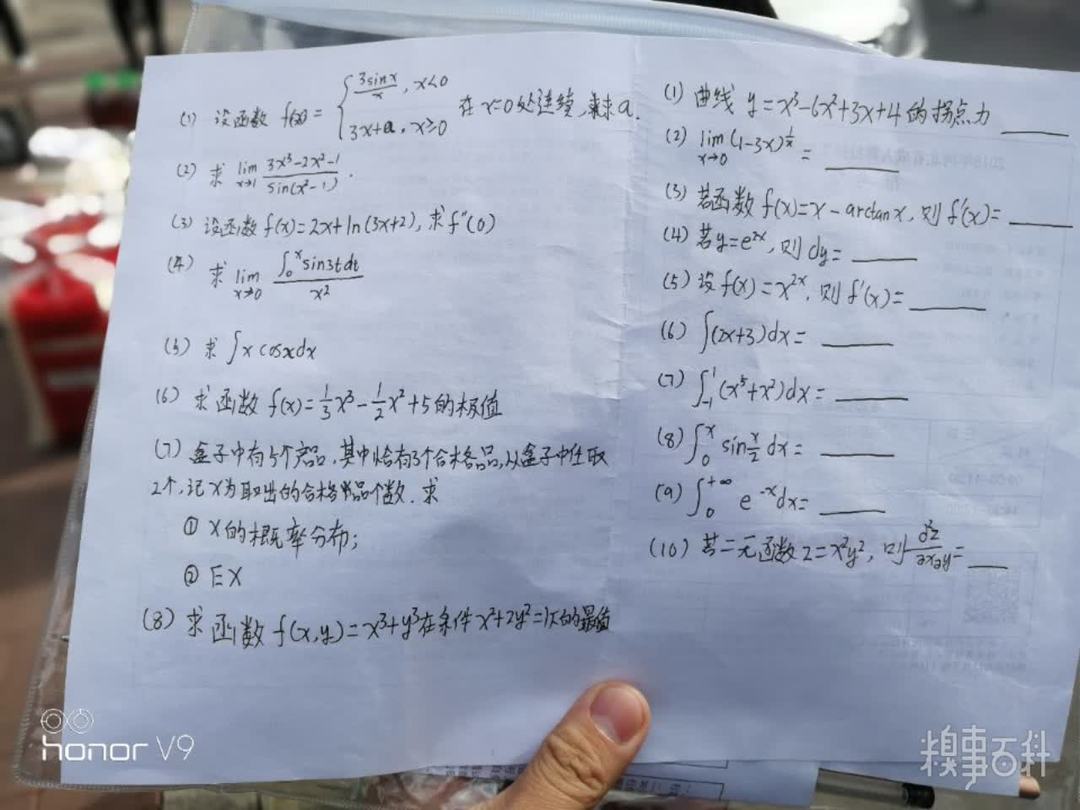 (1) 设函数 f(x) = { 3sinx/x , x<0
3x+a , x≥0 在 x=0 处连续, 求 a.
(2) 求 lim x→1 (3x³-2x²-1)/sin(x²-1) .
(3) 设函数 f(x)=2x+ln(3x+2), 求 f''(0)
(4) 求 lim x→0 ∫₀ˣ sin3tdt / x²
(5) 求 ∫x cosxdx
(6) 求函数 f(x)=1/3x³-1/2x²+5的极值
(7) 盒子中有5个产品, 其中恰有3个合格品, 从盒子中任取
2个, 记 X为取出的合格品个数. 求
① X的概率分布;
② EX
(8) 求函数 f(x,y)=x³+y³在条件 x²+2y²=1下的最值
(1) 曲线 y=x³-6x²+3x+4的拐点为
(2) lim x→0 (1-3x)^(1/x) =
(3) 若函数 f(x)=x-arctanx, 则 f'(x)=
(4) 若y=e²ˣ, 则 dy=
(5) 设 f(x)=x²ˣ, 则 f'(x)=
(6) ∫(2x+3)dx=
(7) ∫₋₁¹(x⁵+x²)dx=
(8) ∫₀ˣ sin x/2 dx=
(9) ∫₀⁺∞ e⁻ˣdx=
(10) 若二元函数 z=x²y², 则 ∂²z/∂x∂y=
honor V9
糗事百科